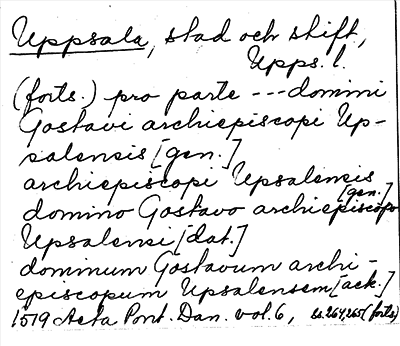 Uppsala, stad och stift,
Upps. l.
(forts.) pro parte --- domini
Gostavi archiepiscopi Up-
salensis [gen.]
archiepiscopi Upsalensis
[gen.]
domino Gostavo archiepiscopo
Upsalensi [dat.]
dominum Gostavum archi-
episcopum Upsalensem [ack.]
1519 Acta Pont. Dan. vol. 6, ss. 264, 265 (forts)